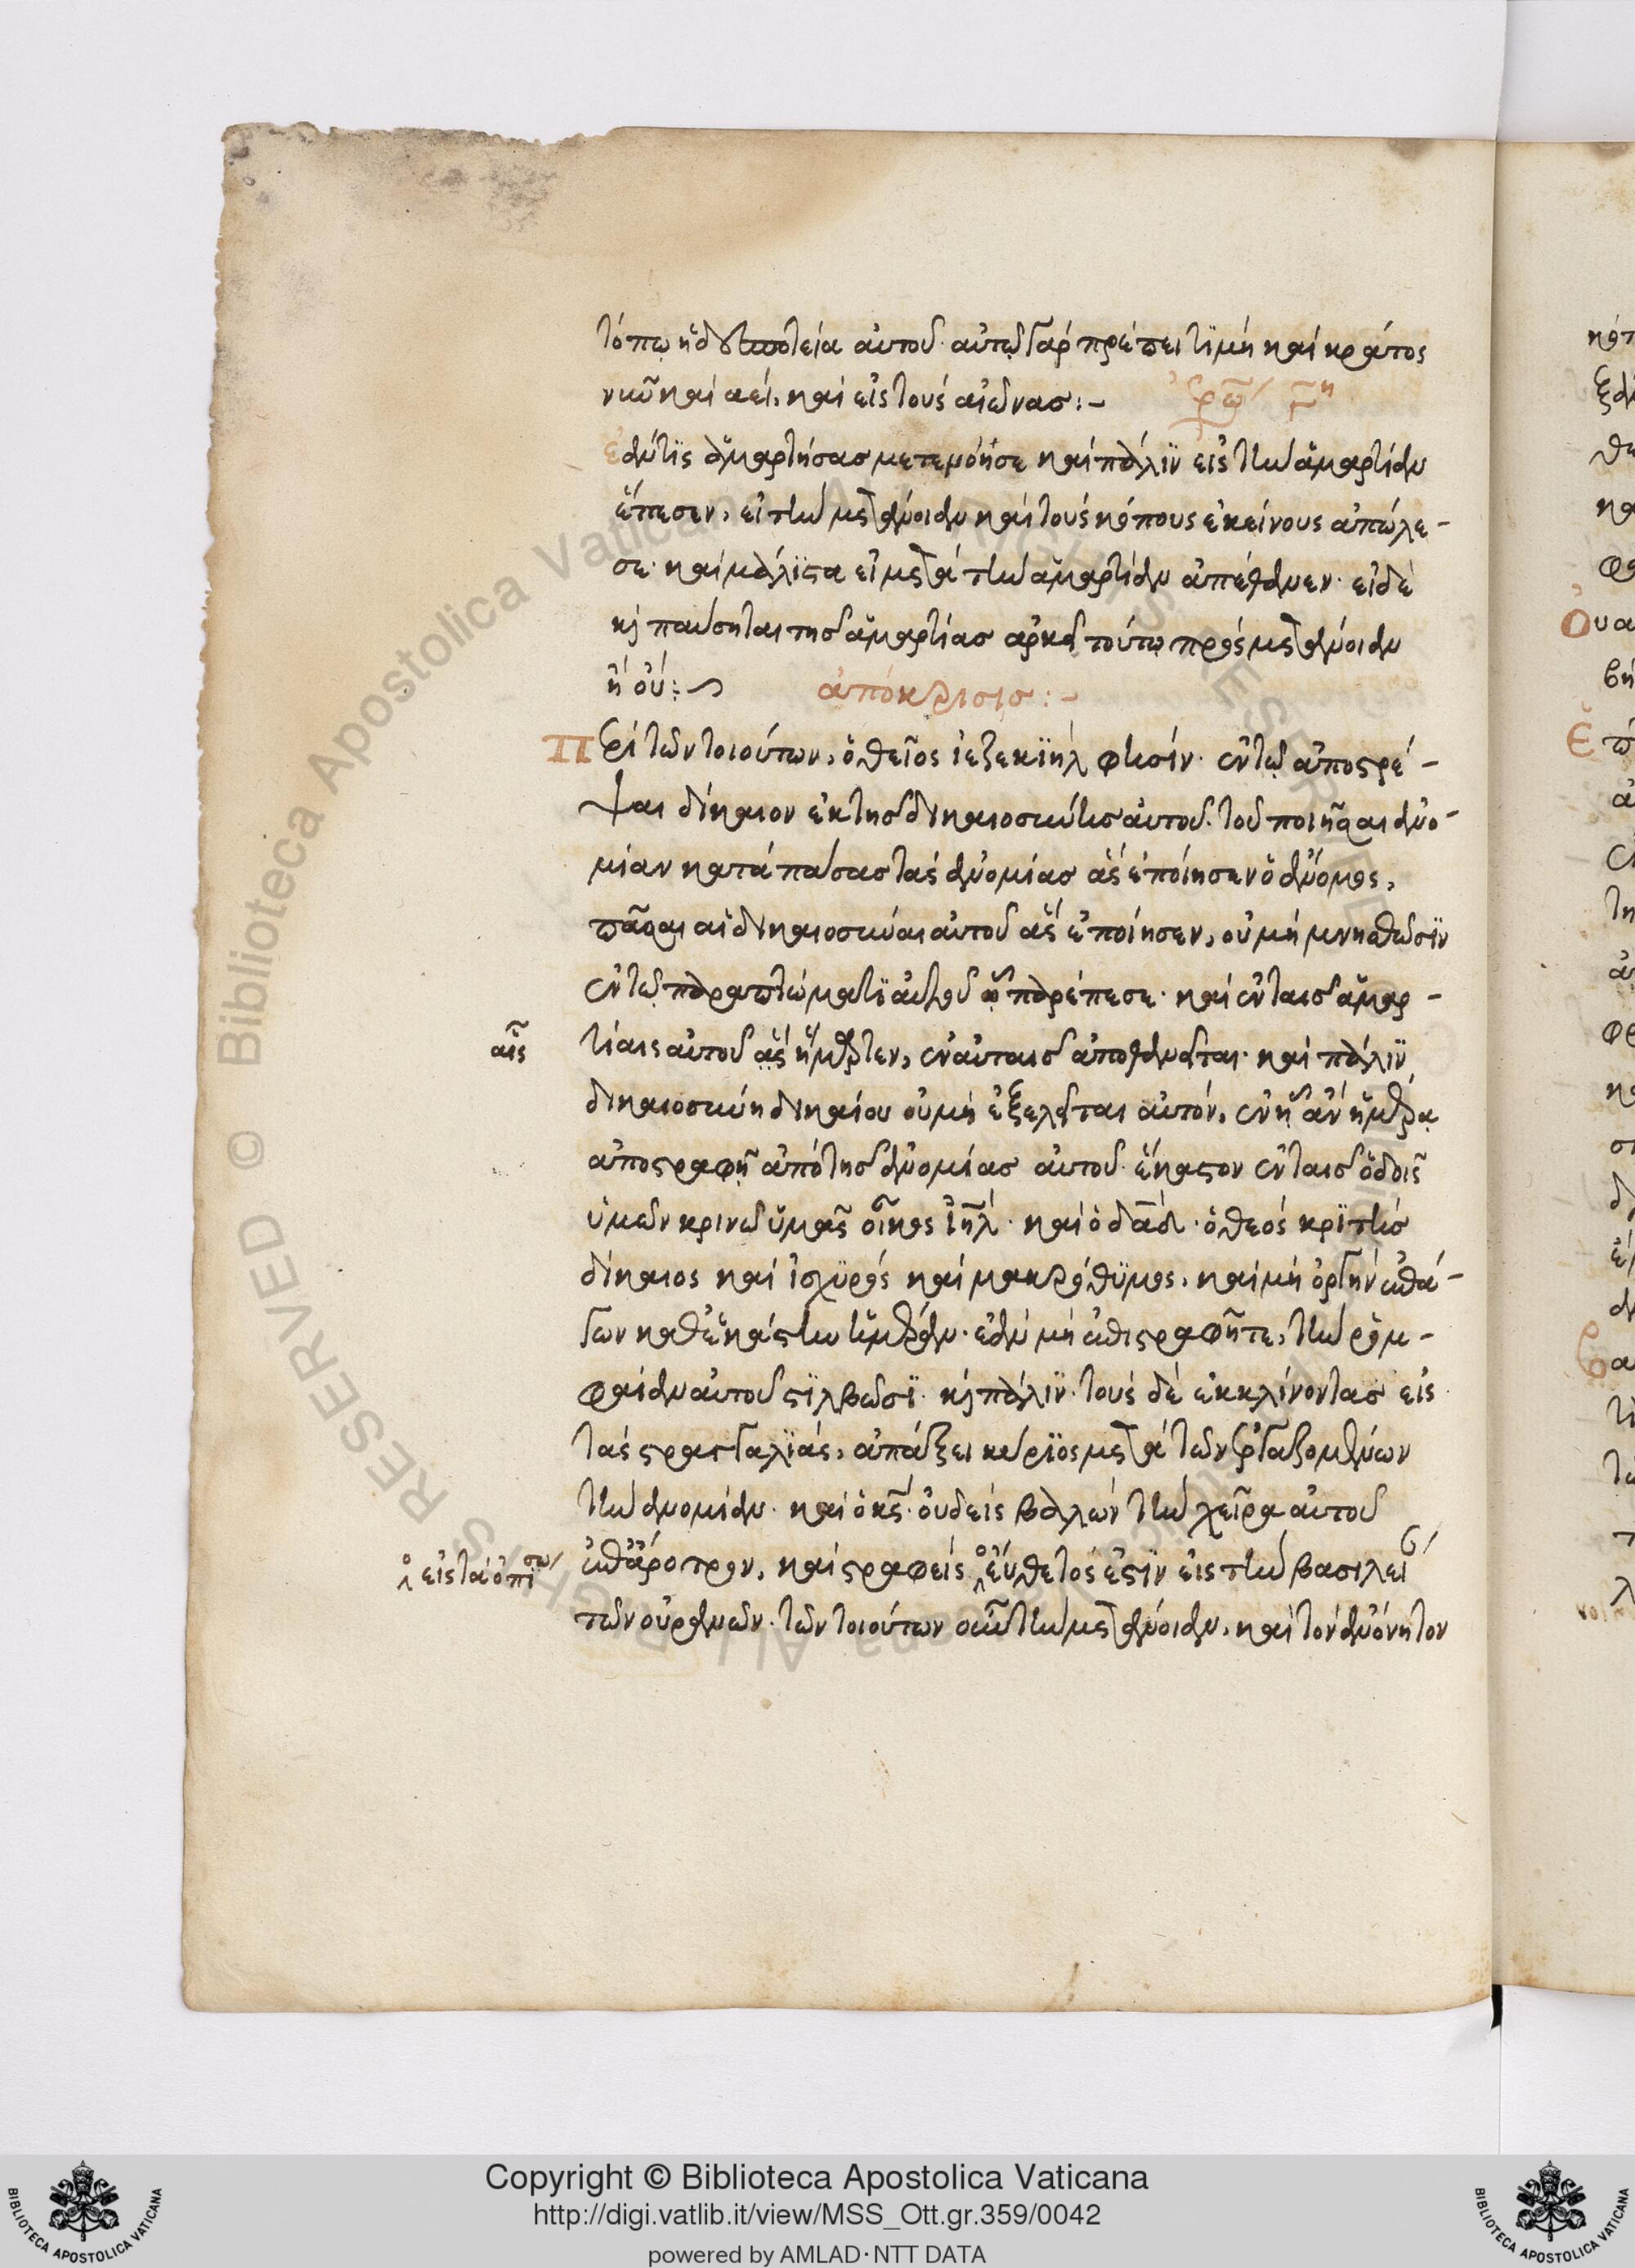 τόπω ἡ δεσποτεία αὐτοῦ. αὐτῷ γὰρ πρέπει τϊμὴ καὶ κράτος
νῦν καὶ αεὶ, καὶ εἰς τοὺς αἰῶνας:-
ἐρώ γ η
ἐάν τϊς ἁμαρτήσας μετενόησε καὶ πάλϊν εἰς τὴν ἁμαρτίαν
ἔπεσεν, εἰ τὴν μετάνοιαν καὶ τοὺς κόπους ἐκείνους ἀπώλε-
σε. καὶ μάλϊστα εἰ μετὰ τὴν ἁμαρτίαν ἀπέθανεν. εἰ δὲ
κ παύσηται τῆς ἁμαρτίας ἀρκεῖ τούτω πρὸς μετάνοιαν
ἢ οὔ:
ἀπόκρισις:-
Περὶ τῶν τοιούτων, ὁ θεῖος ἰεζεκϊὴλ φησίν. ἐν τῷ ἀποστρέ-
ψαι δίκαιον ἐκ τῆς δικαιοσύνης αὐτοῦ. τοῦ ποιῆσαι ἀνο-
μίαν κατὰ πάσας τὰς ἀνομίας ἃς ἐποίησεν ὁ ἄνομος,
πᾶσαι αἱ δικαιοσύναι αὐτοῦ ἃς ἐποίησεν, οὐ μὴ μνησθῶσϊν
ἐν τῷ παραπτώματϊ αὐτοῦ ᾧ παρέπεσε. καὶ ἐν ταῖς ἁμαρ-
αἷς
τίαις αὐτοῦ ἃς ἥμαρτεν, ἐν αὐταῖς ἀποθανεῖται. καὶ πάλϊν
δικαιοσύνη δικαίου οὐ μὴ ἐξελεῖται αὐτὸν, ἐν ᾗ ἂν ἡμέρα
ἀποστραφῇ ἀπὸ τῆς ἀνομίας αὐτοῦ. ἕκαστον ἐν ταῖς ὁδοῖς
ὑμῶν κρινῶ ὑμᾶς οἶκος ἰηλ. καὶ ὁ δαδ. ὁ θεὸς κρϊτὴς
δίκαιος καὶ ἰσχϋρὸς καὶ μακρόθϋμος, καὶ μὴ ὀργὴν ἐπά-
γων καθ ἑκάστην ἡμέραν. ἐὰν μὴ ἐπιστραφῆτε, τὴν ῥομ-
φαίαν αὐτοῦ στϊλβώσϊ. κ πάλϊν. τοὺς δὲ ἐκκλίνοντας εἰς
τὰς στραγγαλϊὰς, ἀπάξει κύρϊος μετὰ τῶν ἐργαζομένων
τὴν ἀνομίαν. καὶ ὁ κς. οὐδεὶς βαλὼν τὴν χεῖρα αὐτοῦ
ἐπ ἄροτρον, καὶ στραφεὶς εὔθετός ἐστϊν εἰς τὴν βασιλεί
εἰς τὰ ὀπίσω
τῶν οὐρανῶν. τῶν τοιούτων οὖν τὴν μετάνοιαν, καὶ τὸν ἀνόνητον
Copyright © Biblioteca Apostolica Vaticana
http://digi.vatlib.it/view/MSS_Ott.gr.359/0042
powered by AMLAD·NTT DATA